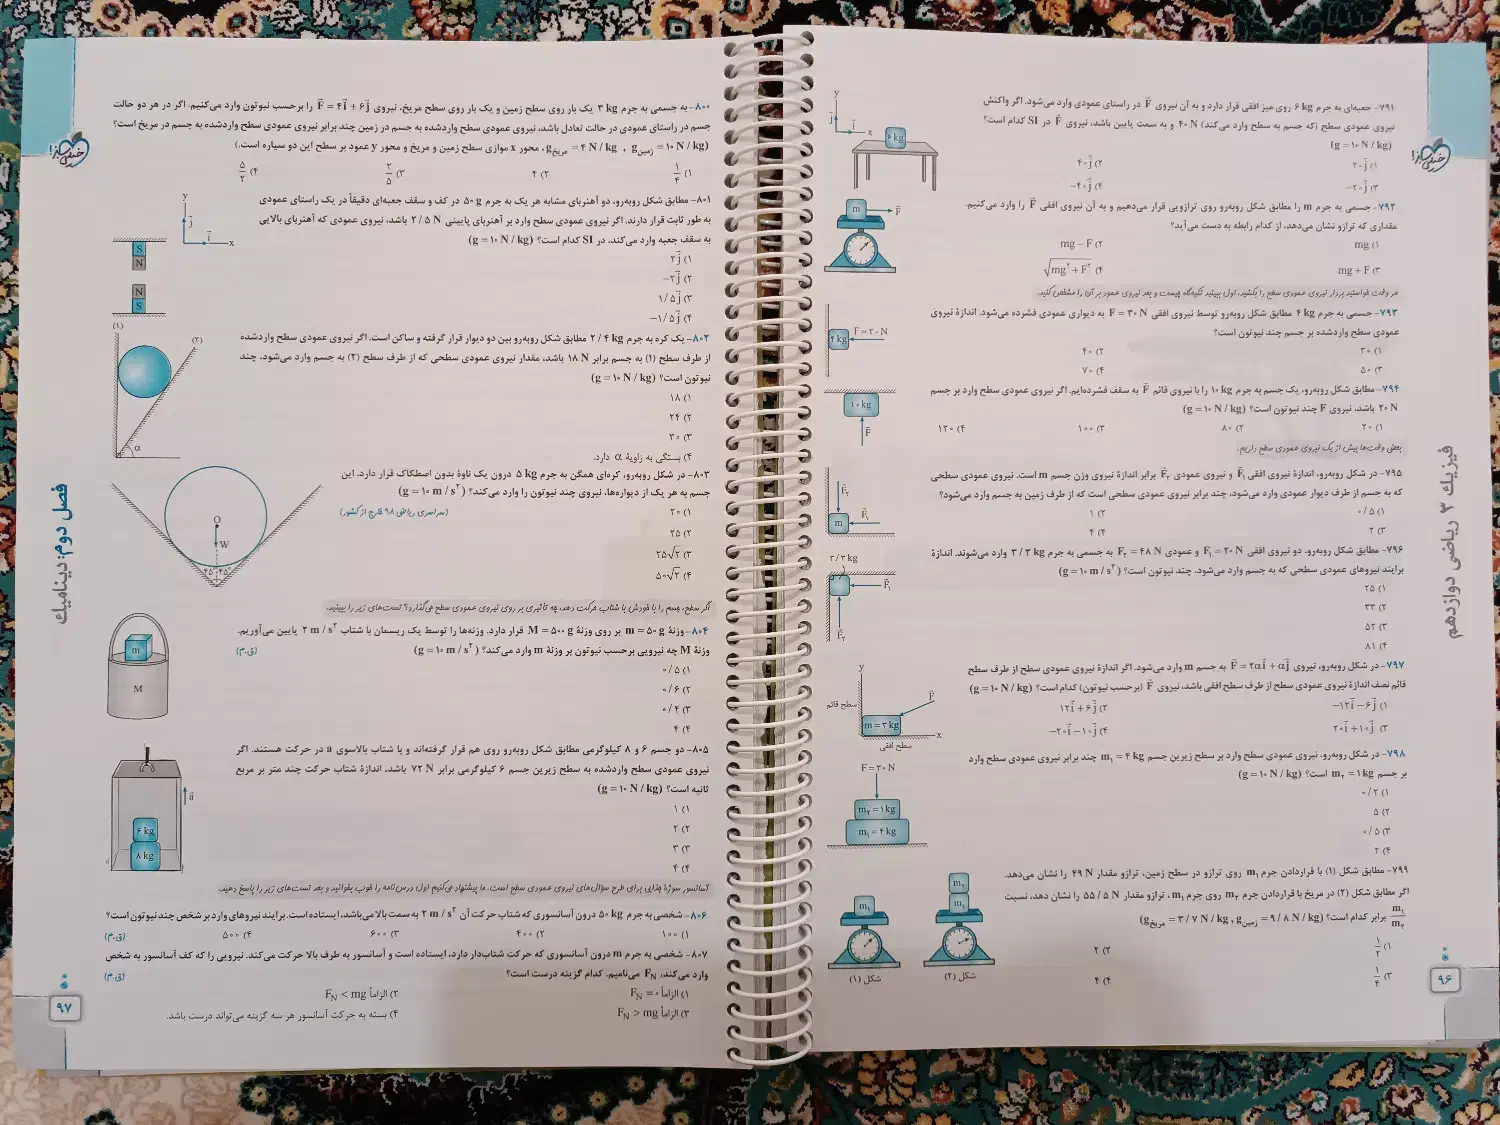 ۷۹۱- جعبه‌ای به جرم ۶ kg روی میز افقی قرار دارد و به آن نیروی F⃗ در راستای عمودی وارد می‌شود. اگر واکنش
نیروی عمودی سطح (که جسم به سطح وارد می‌کند) ۴۰ N و به سمت پایین باشد، نیروی F⃗ در SI کدام است؟
(g = ۱۰ N / kg)
۱) ۲۰ j⃗
۲) ۴۰ j⃗
۳) −۲۰ j⃗
۴) −۴۰ j⃗
y
j⃗
i⃗
x
۶ kg
۷۹۲- جسمی به جرم m را مطابق شکل روبه‌رو روی ترازویی قرار می‌دهیم و به آن نیروی افقی F⃗ را وارد می‌کنیم.
مقداری که ترازو نشان می‌دهد، از کدام رابطه به دست می‌آید؟
۱) mg
۲) mg − F
۳) mg + F
۴) √mg² + F²
m
F⃗
هر وقت خواستید بردار نیروی عمودی سطح را بکشید، اول ببینید تکیه‌گاه چیست و بعد نیروی عمود بر آن را مشخص کنید.
۷۹۳- جسمی به جرم ۴ kg مطابق شکل روبه‌رو توسط نیروی افقی F = ۳۰ N به دیواری عمودی فشرده می‌شود. اندازهٔ نیروی
عمودی سطح واردشده بر جسم چند نیوتون است؟
۱) ۳۰
۲) ۴۰
۳) ۵۰
۴) ۷۰
۴ kg
F = ۳۰ N
۷۹۴- مطابق شکل روبه‌رو، یک جسم به جرم ۱۰ kg را با نیروی قائم F⃗ به سقف فشرده‌ایم. اگر نیروی عمودی سطح وارد بر جسم
۲۰ N باشد، نیروی F چند نیوتون است؟ (g = ۱۰ N / kg)
۱) ۲۰
۲) ۸۰
۳) ۱۰۰
۴) ۱۲۰
۱۰ kg
F⃗
بعضی وقت‌ها بیش از یک نیروی عمودی سطح داریم.
۷۹۵- در شکل روبه‌رو، اندازهٔ نیروی افقی F⃗₁ و نیروی عمودی F⃗₂ برابر اندازهٔ نیروی وزن جسم m است. نیروی عمودی سطحی
که به جسم از طرف دیوار عمودی وارد می‌شود، چند برابر نیروی عمودی سطحی است که از طرف زمین به جسم وارد می‌شود؟
۱) ۰/۵
۲) ۱
۳) ۲
۴) ۴
F⃗₂
m
F⃗₁
۷۹۶- مطابق شکل روبه‌رو، دو نیروی افقی F₁ = ۲۰ N و عمودی F₂ = ۴۸ N به جسمی به جرم ۳/۳ kg وارد می‌شوند. اندازهٔ
برایند نیروهای عمودی سطحی که به جسم وارد می‌شود، چند نیوتون است؟ (g = ۱۰ m / s²)
۱) ۲۵
۲) ۳۳
۳) ۵۲
۴) ۸۱
۳/۳ kg
F⃗₁
F⃗₂
۷۹۷- در شکل روبه‌رو، نیروی F⃗ = ۲αi⃗ + αj⃗ به جسم m وارد می‌شود. اگر اندازهٔ نیروی عمودی سطح از طرف سطح
قائم نصف اندازهٔ نیروی عمودی سطح از طرف سطح افقی باشد، نیروی F⃗ (برحسب نیوتون) کدام است؟ (g = ۱۰ N / kg)
۱) −۱۲i⃗ − ۶j⃗
۲) ۱۲i⃗ + ۶j⃗
۳) ۲۰i⃗ + ۱۰j⃗
۴) −۲۰i⃗ − ۱۰j⃗
y
سطح قائم
F⃗
m = ۳ kg
x
سطح افقی
۷۹۸- در شکل روبه‌رو، نیروی عمودی سطح وارد بر سطح زیرین جسم m₁ = ۴ kg چند برابر نیروی عمودی سطح وارد
بر جسم m₂ = ۱ kg است؟ (g = ۱۰ N / kg)
۱) ۰/۲
۲) ۵
۳) ۰/۵
۴) ۲
F = ۳۰ N
m₂ = ۱ kg
m₁ = ۴ kg
۷۹۹- مطابق شکل (۱) با قراردادن جرم m₁ روی ترازو در سطح زمین، ترازو مقدار ۴۹ N را نشان می‌دهد.
اگر مطابق شکل (۲) در مریخ با قراردادن جرم m₂ روی جرم m₁، ترازو مقدار ۵۵/۵ N را نشان دهد، نسبت
m₁/m₂ برابر کدام است؟ (g زمین = ۹/۸ N / kg , g مریخ = ۳/۷ N / kg)
۱) ۱/۲
۲) ۲
۳) ۱/۴
۴) ۴
m₁
شکل (۱)
m₂
m₁
شکل (۲)
فیزیک ۳ ریاضی دوازدهم
۹۶
خیلی سبز!
۸۰۰- به جسمی به جرم ۳ kg یک بار روی سطح زمین و یک بار روی سطح مریخ، نیروی F⃗ = ۴i⃗ + ۶j⃗ را برحسب نیوتون وارد می‌کنیم. اگر در هر دو حالت
جسم در راستای عمودی در حالت تعادل باشد، نیروی عمودی سطح واردشده به جسم در زمین چند برابر نیروی عمودی سطح واردشده به جسم در مریخ است؟
(g زمین = ۱۰ N / kg , g مریخ = ۴ N / kg، محور x موازی سطح زمین و مریخ و محور y عمود بر سطح این دو سیاره است.)
۱) ۱/۴
۲) ۴
۳) ۲/۵
۴) ۵/۲
۸۰۱- مطابق شکل روبه‌رو، دو آهنربای مشابه هر یک به جرم ۵۰ g در کف و سقف جعبه‌ای دقیقاً در یک راستای عمودی
به طور ثابت قرار دارند. اگر نیروی عمودی سطح وارد بر آهنربای پایینی ۲/۵ N باشد، نیروی عمودی که آهنربای بالایی
به سقف جعبه وارد می‌کند، در SI کدام است؟ (g = ۱۰ N / kg)
۱) ۲j⃗
۲) −۲j⃗
۳) ۱/۵j⃗
۴) −۱/۵j⃗
y
j⃗
i⃗
x
S
N
N
S
۸۰۲- یک کره به جرم ۲/۴ kg مطابق شکل روبه‌رو بین دو دیوار قرار گرفته و ساکن است. اگر نیروی عمودی سطح واردشده
از طرف سطح (۱) به جسم برابر ۱۸ N باشد، مقدار نیروی عمودی سطحی که از طرف سطح (۲) به جسم وارد می‌شود، چند
نیوتون است؟ (g = ۱۰ N / kg)
۱) ۱۸
۲) ۲۴
۳) ۳۰
۴) بستگی به زاویهٔ α دارد.
(۱)
(۲)
α
۸۰۳- در شکل روبه‌رو، کره‌ای همگن به جرم ۵ kg درون یک ناوهٔ بدون اصطکاک قرار دارد. این
جسم به هر یک از دیواره‌ها، نیروی چند نیوتون را وارد می‌کند؟ (g = ۱۰ m / s²)
(سراسری ریاضی ۹۸ خارج از کشور)
۱) ۲۰
۲) ۲۵
۳) ۲۵√۲
۴) ۵۰√۲
O
W
۴۵° ۴۵°
اگر سطح، جسم را با خودش با شتاب حرکت دهد، چه تأثیری بر روی نیروی عمودی سطح می‌گذارد؟ تست‌های زیر را ببینید.
۸۰۴- وزنهٔ m = ۵۰ g بر روی وزنهٔ M = ۵۰۰ g قرار دارد. وزنه‌ها را توسط یک ریسمان با شتاب ۲ m / s² پایین می‌آوریم.
وزنهٔ M چه نیرویی برحسب نیوتون بر وزنهٔ m وارد می‌کند؟ (g = ۱۰ m / s²)
(ق.م)
۱) ۰/۵
۲) ۰/۶
۳) ۰/۴
۴) ۴
m
M
۸۰۵- دو جسم ۶ و ۸ کیلوگرمی مطابق شکل روبه‌رو روی هم قرار گرفته‌اند و با شتاب بالاسوی a در حرکت هستند. اگر
نیروی عمودی سطح واردشده به سطح زیرین جسم ۶ کیلوگرمی برابر ۷۲ N باشد، اندازهٔ شتاب حرکت چند متر بر مربع
ثانیه است؟ (g = ۱۰ N / kg)
۱) ۱
۲) ۲
۳) ۳
۴) ۴
a⃗
۶ kg
۸ kg
آسانسور سوژهٔ جذابی برای طرح سؤال‌های نیروی عمودی سطح است. ما پیشنهاد می‌کنیم اول درس‌نامه را خوب بخوانید و بعد تست‌های زیر را پاسخ دهید.
۸۰۶- شخصی به جرم ۵۰ kg درون آسانسوری که شتاب حرکت آن ۲ m / s² به سمت بالا می‌باشد، ایستاده است. برایند نیروهای وارد بر شخص چند نیوتون است؟
۱) ۱۰۰
۲) ۴۰۰
۳) ۶۰۰
۴) ۵۰۰
(ق.م)
۸۰۷- شخصی به جرم m درون آسانسوری که حرکت شتاب‌دار دارد، ایستاده است و آسانسور به طرف بالا حرکت می‌کند. نیرویی را که کف آسانسور به شخص
وارد می‌کند، F_N می‌نامیم. کدام گزینه درست است؟
(ق.م)
۱) الزاماً F_N = ۰
۲) الزاماً F_N < mg
۳) الزاماً F_N > mg
۴) بسته به حرکت آسانسور هر سه گزینه می‌تواند درست باشد.
فصل دوم: دینامیک
۹۷
خیلی سبز!